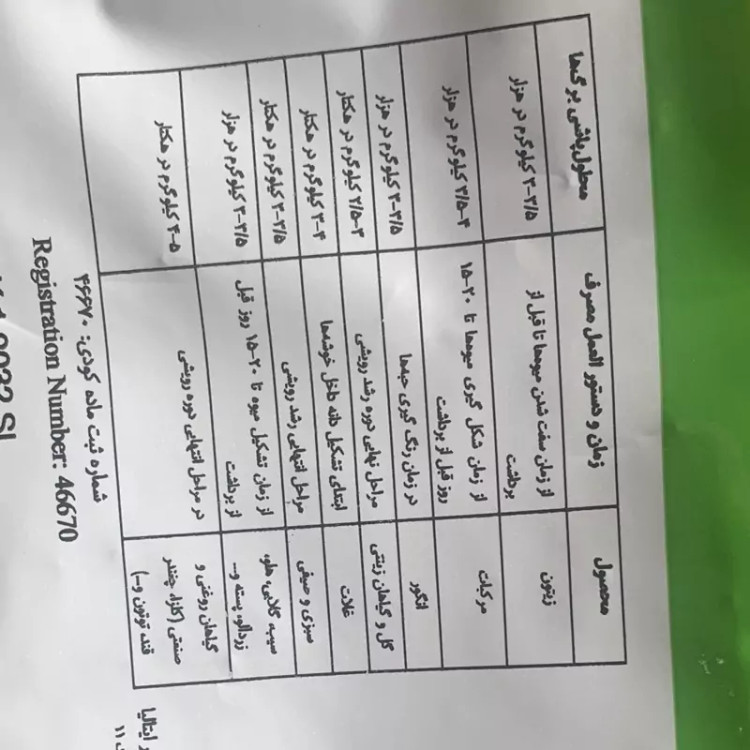 محصول	زمان و دستور العمل مصرف	محلول‌پاشی برگ‌ها
زیتون	از زمان سفت شدن میوه‌ها تا قبل از	۳-۳/۵ کیلوگرم در هزار
برداشت
مرکبات	از زمان شکل گیری میوه‌ها تا ۲۰-۱۵	۳/۵-۴ کیلوگرم در هزار
روز قبل از برداشت
انگور	در زمان رنگ گیری حبه‌ها	۳-۳/۵ کیلوگرم در هزار
گل و گیاهان زینتی	مراحل نهایی دوره رشد رویشی	۲/۵-۳ کیلوگرم در هکتار
غلات	ابتدای تشکیل دانه داخل خوشه‌ها	۳-۴ کیلوگرم در هکتار
سبزی و صیفی	مراحل انتهایی رشد رویشی	۳-۳/۵ کیلوگرم در هکتار
سیب، گلابی، هلو،	از زمان تشکیل میوه تا ۲۰-۱۵ روز قبل	۳-۳/۵ کیلوگرم در هزار
زردآلو، پسته و...	از برداشت
گیاهان روغنی و	در مراحل انتهایی دوره رویشی	۴-۵ کیلوگرم در هکتار
صنعتی (کلزا، چغندر
قند، توتون و...)
شماره ثبت ماده کودی: ۴۶۶۷۰
Registration Number: 46670
ایتالیا
۱۱